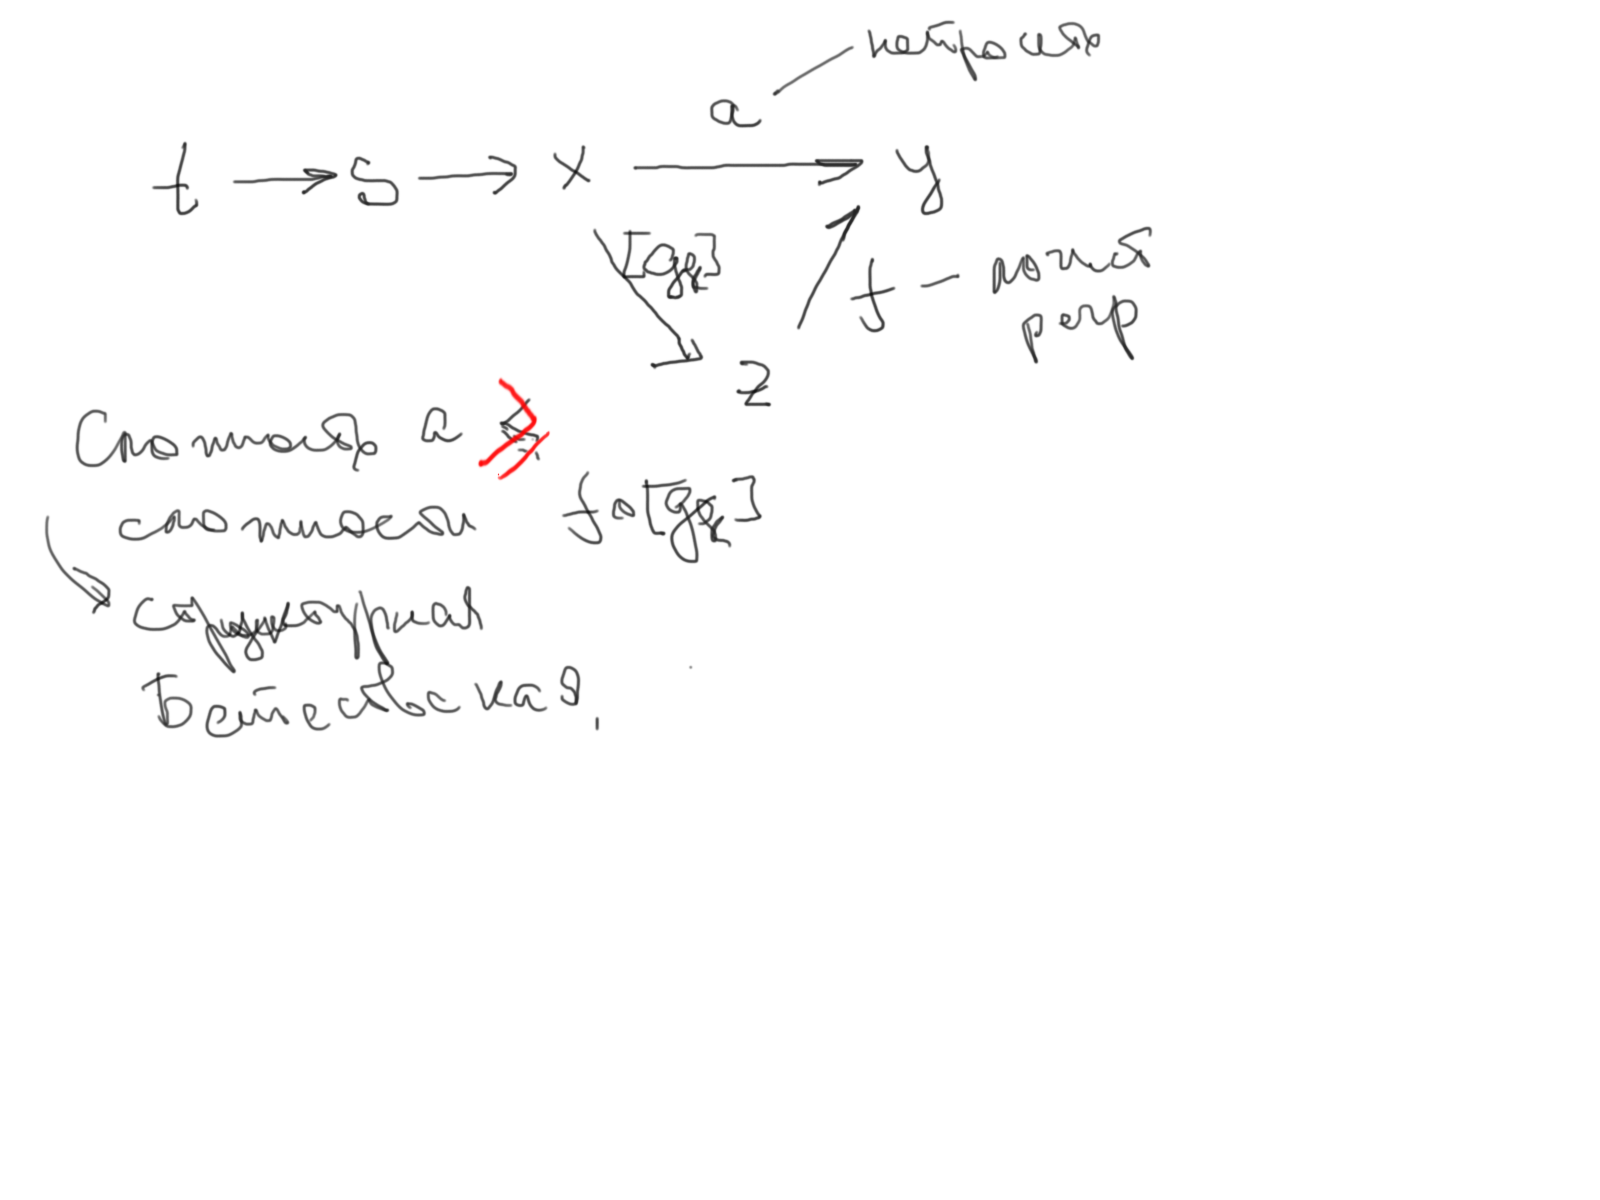 нейросеть
a
t → s → x → y
[g_k]
f — логист
регр
z
Сложность a ⩾
сложности f∘[g_k]
структурная
Байесовская,